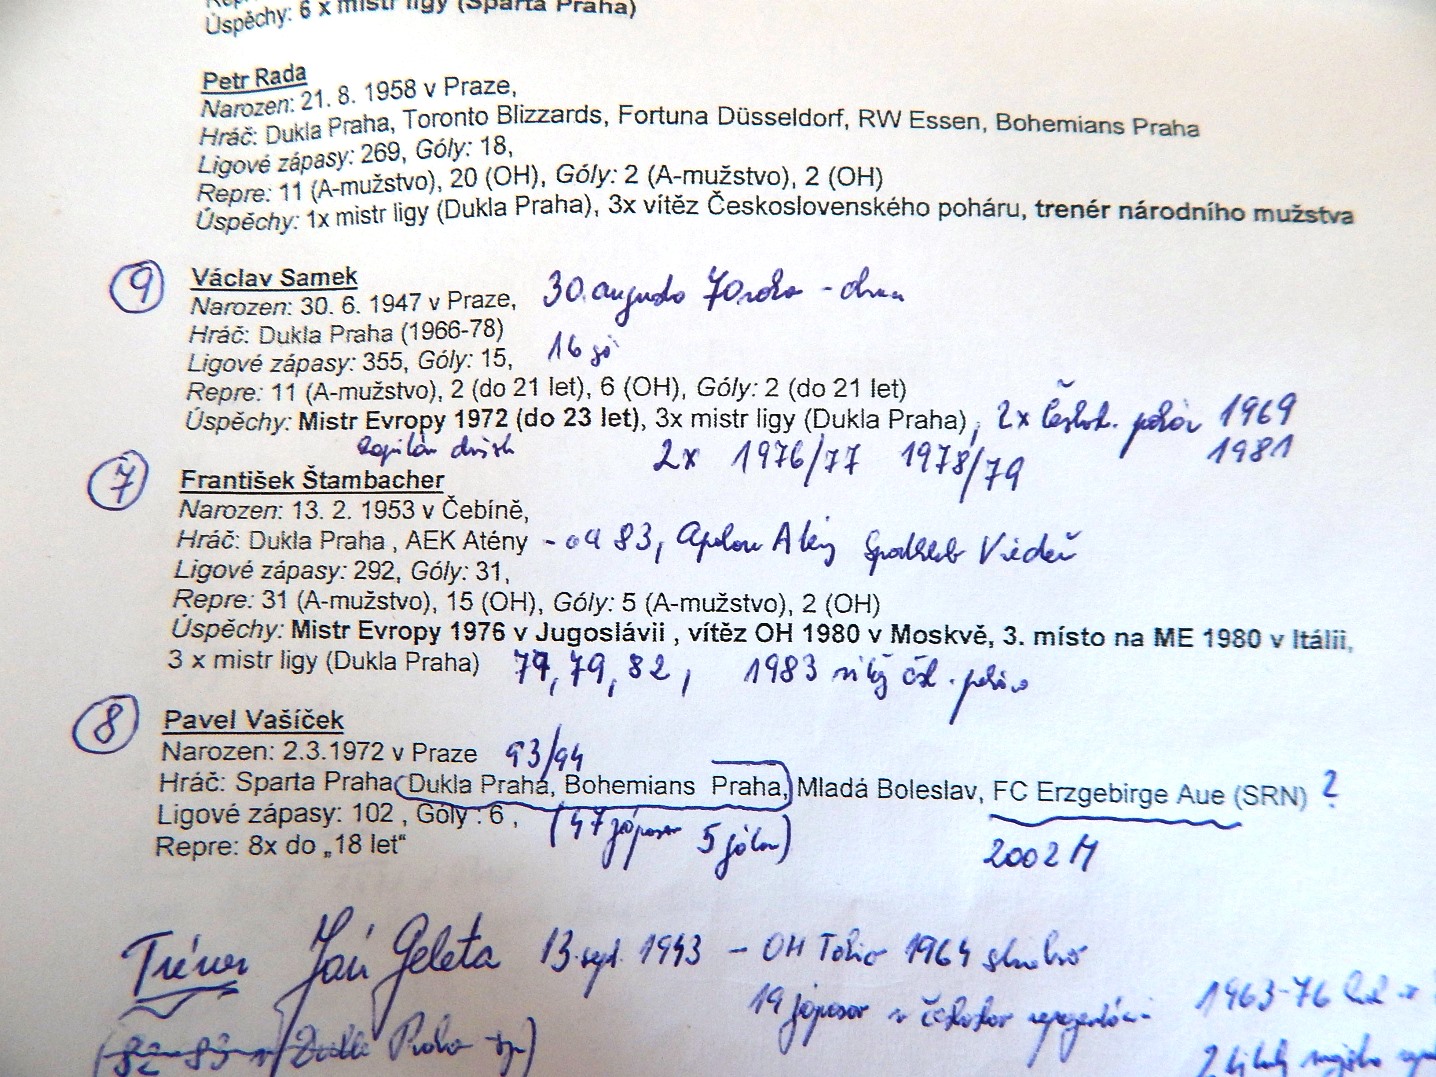 Úspěchy: 6 x mistr ligy (Sparta Praha)
Petr Rada
Narozen: 21. 8. 1958 v Praze,
Hráč: Dukla Praha, Toronto Blizzards, Fortuna Düsseldorf, RW Essen, Bohemians Praha
Ligové zápasy: 269, Góly: 18,
Repre: 11 (A-mužstvo), 20 (OH), Góly: 2 (A-mužstvo), 2 (OH)
Úspěchy: 1x mistr ligy (Dukla Praha), 3x vítěz Československého poháru, trenér národního mužstva
9 Václav Samek
Narozen: 30. 6. 1947 v Praze, 30. augusta 70
Hráč: Dukla Praha (1966-78)
Ligové zápasy: 355, Góly: 15, 16
Repre: 11 (A-mužstvo), 2 (do 21 let), 6 (OH), Góly: 2 (do 21 let)
Úspěchy: Mistr Evropy 1972 (do 23 let), 3x mistr ligy (Dukla Praha), 2x 1969
2x 1976/77 1978/79 1981
7 František Štambacher
Narozen: 13. 2. 1953 v Čebíně,
Hráč: Dukla Praha , AEK Atény - od 83, Viedeň
Ligové zápasy: 292, Góly: 31,
Repre: 31 (A-mužstvo), 15 (OH), Góly: 5 (A-mužstvo), 2 (OH)
Úspěchy: Mistr Evropy 1976 v Jugoslávii , vítěz OH 1980 v Moskvě, 3. místo na ME 1980 v Itálii,
3 x mistr ligy (Dukla Praha) 79, 82, 1983
8 Pavel Vašíček
Narozen: 2.3.1972 v Praze 93/94
Hráč: Sparta Praha(Dukla Praha, Bohemians Praha, Mladá Boleslav, FC Erzgebirge Aue (SRN) ?
Ligové zápasy: 102 , Góly : 6 , (47 zápasov 5 gólov)
Repre: 8x do „18 let“ 2002
Tréner Ján Geleta 13. sept. 1943 - OH Tokio 1964 striebro
19 zápasov v 1963-76
Dukla Praha